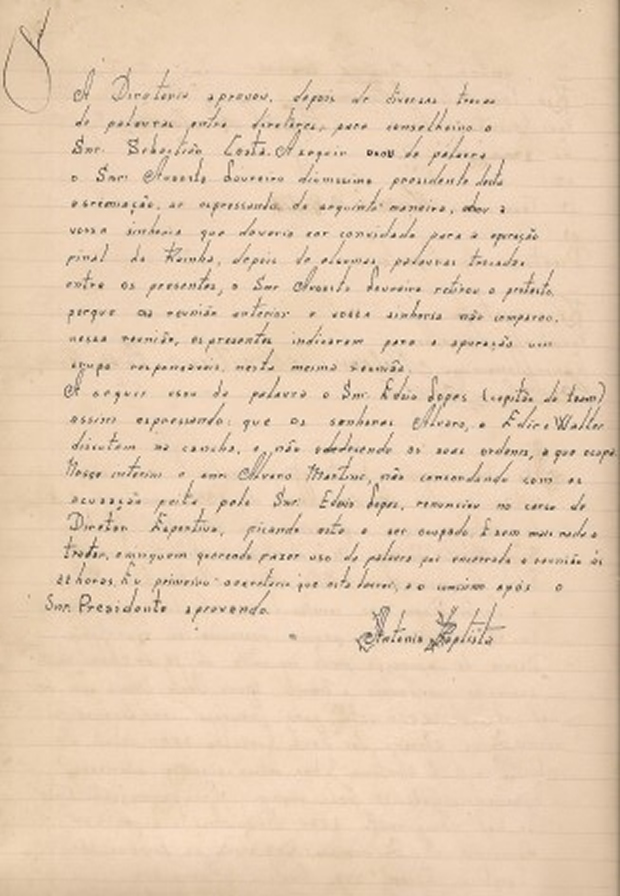 A Diretoria aprovou, depois de diversas trocas
de palavras entre diretores, para conselheiro o
Snr. Sebastião Costa. A seguir usou de palavra
o Snr. Augusto Loureiro dignissimo presidente desta
agremiação, se expressando da seguinte maneira, a
vossa sinhoria que deveria ser convidado para a apuração
final da Rainha, depois de algumas palavras trocadas
entre os presentes, o Snr Augusto Loureiro retirou o protesto,
porque na reunião anterior a vossa sinhoria não compareu.
nessa reunião, os presentes indicaram para a apuração um
grupo responsavel, nesta mesma reunião.
A seguir usou da palavra o Snr. Edvio Lopes (capitão do team)
assim expressando: que os senhores Alvaro, e Walter
discutem na cancha, e não obedecendo as suas ordens, o que
o snr. Alvaro Martins, não concordando com as
acusação feita pelo Snr. Edvio Lopes, renunciou no cargo de
Diretor Esportivo, ficando este a ser ocupado. E sem mais nada a
tratar, e ninguem querendo fazer uso da palavra foi encerrada a reunião ás
horas. Eu primeiro secretario que esta lavrei, e o assino após o
Snr. Presidente aprovando.
Antonio Baptista